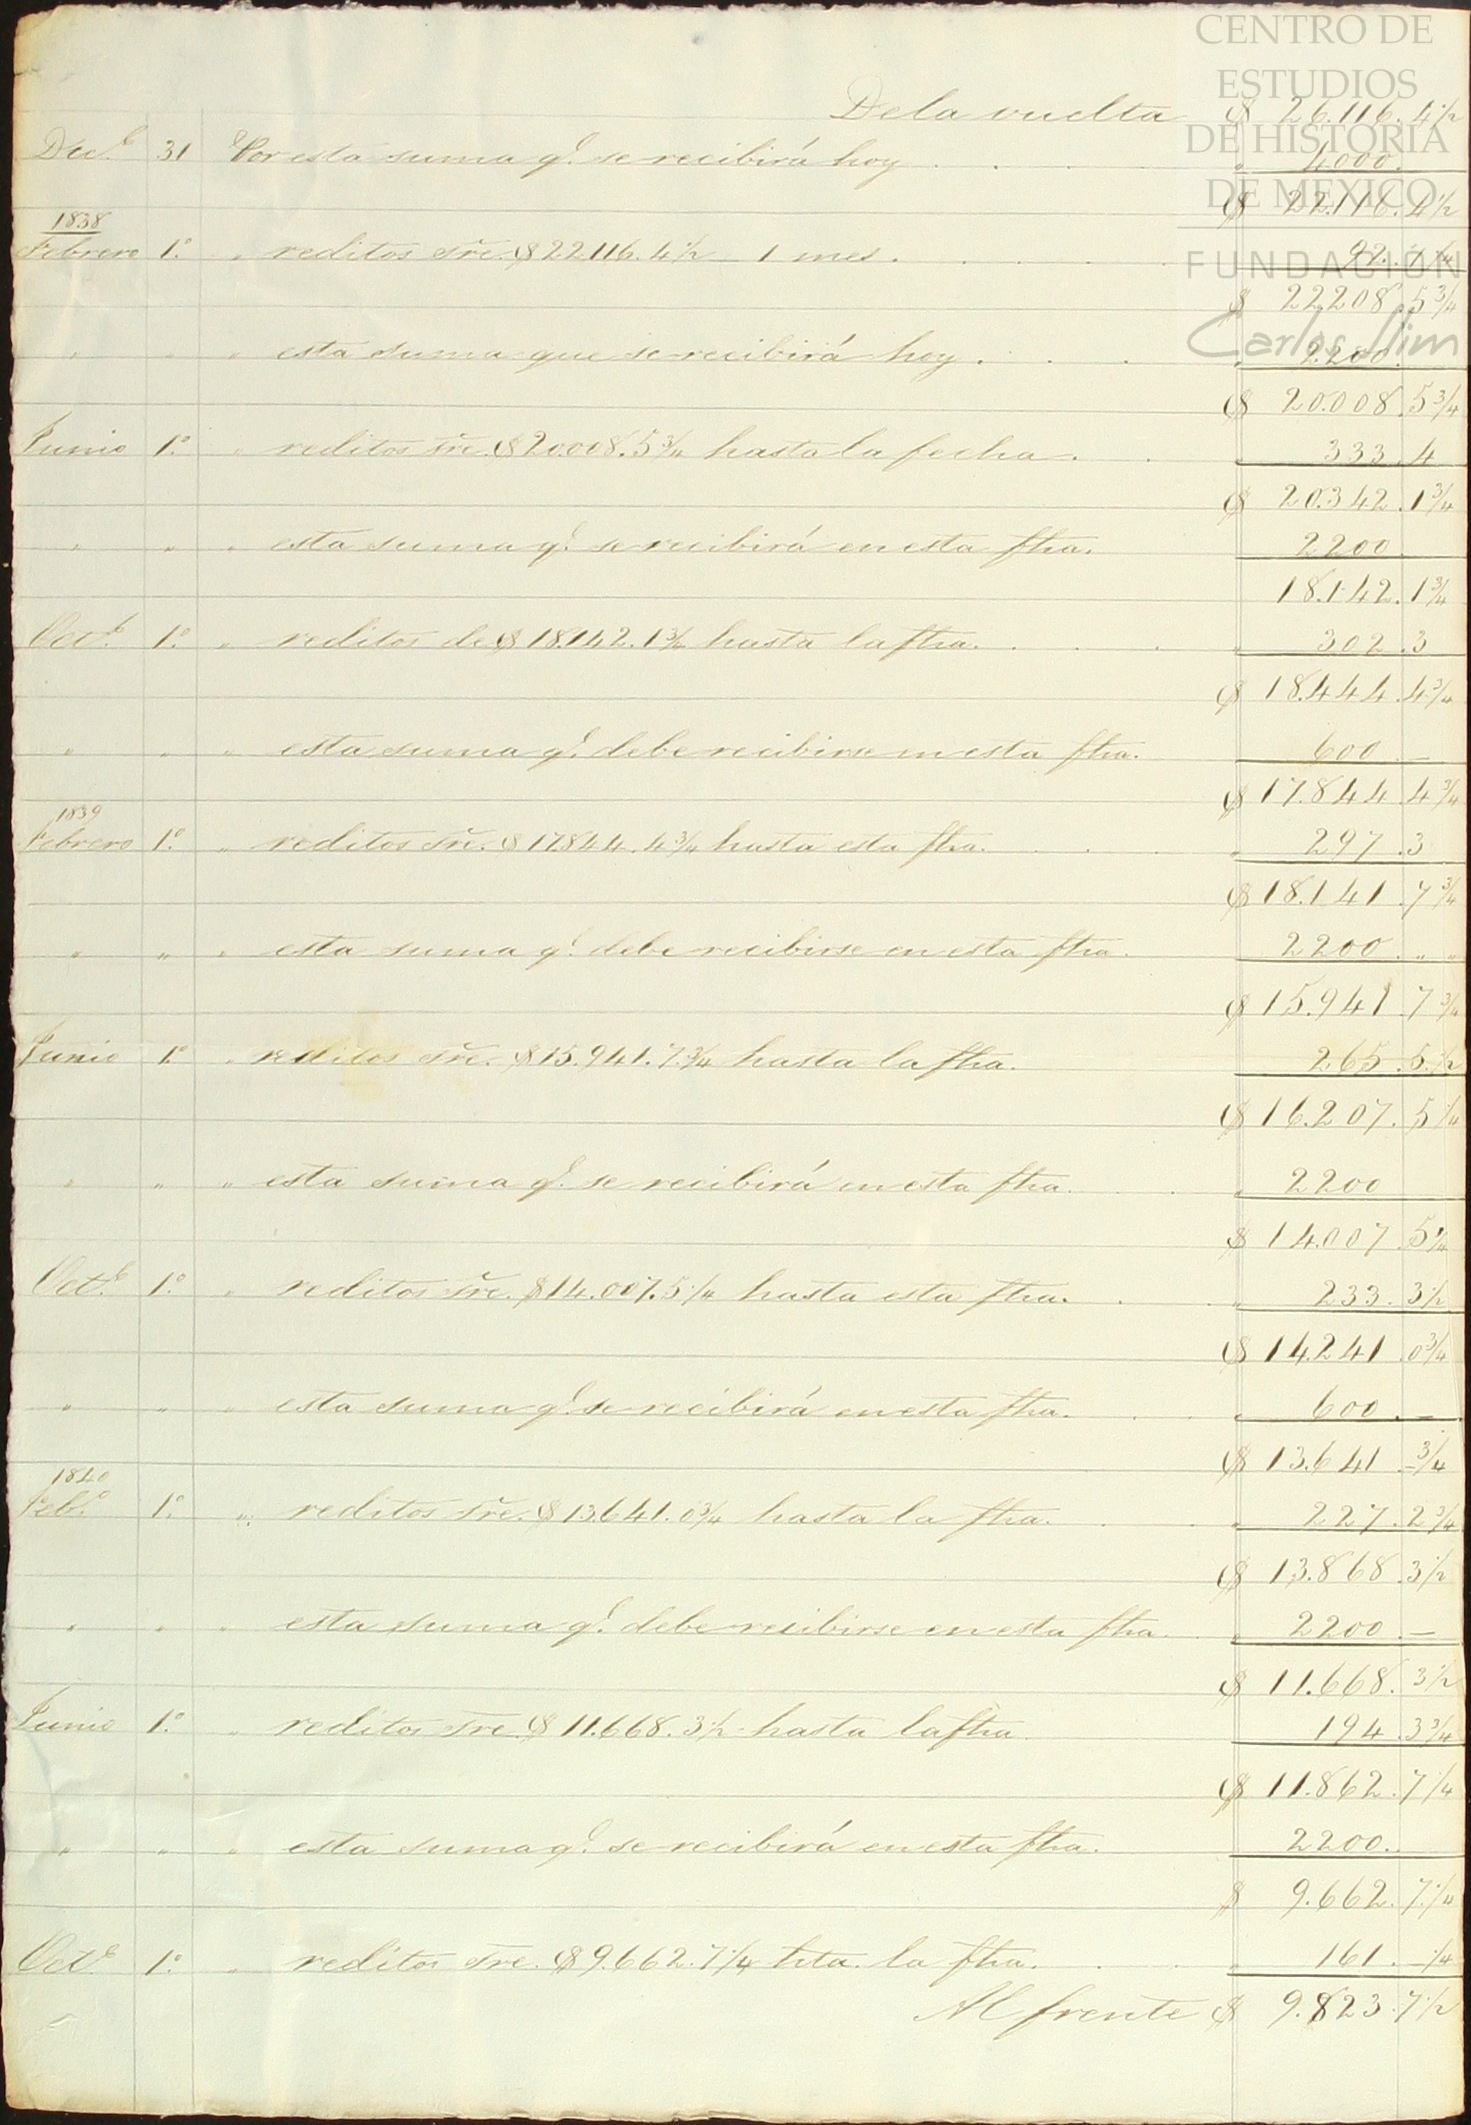 CENTRO DE
ESTUDIOS
DE HISTORIA
DE MEXICO
FUNDACIÓN
Carlos Slim
De la vuelta $ 26.116. 4 1/2
Dec.e 31 Por esta suma q.e se recibirá hoy . . . . „ 4000.
$ 22.116. 4 1/2
1838
Febrero 1.o „ reditos sre. $ 22.116. 4 1/2 1 mes . . . . 92. 1 1/4
$ 22208. 5 3/4
„ „ „ esta suma que se recibirá hoy . . . „ 2200.
$ 20.008. 5 3/4
Junio 1.o „ reditos sre. $ 20.008. 5 3/4 hasta la fecha . . „ 333. 4
$ 20.342. 1 3/4
„ „ „ esta suma q.e se recibirá en esta fha. 2200
18.142. 1 3/4
Oct.e 1.o „ reditos de $ 18.142. 1 3/4 hasta la fha. . . . „ 302. 3
$ 18.444. 4 3/4
„ „ „ esta suma q.e debe recibirse en esta fha. 600. —
$ 17.844 4 3/4
1839
Febrero 1.o „ reditos sre. $ 17.844. 4 3/4 hasta esta fha. . . . „ 297. 3
$ 18.141. 7 3/4
„ „ „ esta suma q.e debe recibirse en esta fha. 2200. „ „
$ 15.941 7 3/4
Junio 1.o „ reditos sre. $ 15.941. 7 3/4 hasta la fha. 265. 5 1/2
$ 16.207. 5 1/4
„ „ „ esta suma q.e se recibirá en esta fha. . . „ 2200
$ 14.007. 5 1/4
Oct.e 1.o „ reditos sre. $ 14.007. 5 1/4 hasta esta fha. . . „ 233. 3 1/2
$ 14.241. 0 3/4
„ „ „ esta suma q.e se recibirá en esta fha. . . „ 600. —
$ 13.641 — 3/4
1840
Feb.o 1.o „ reditos sre. $ 13.641. 0 3/4 hasta la fha. . . „ 227. 2 3/4
$ 13.868. 3 1/2
„ „ „ esta suma q.e debe recibirse en esta fha. . „ 2200. —
$ 11.668. 3 1/2
Junio 1.o „ reditos sre. $ 11.668. 3 1/2 hasta la fha. 194. 3 3/4
$ 11.862. 7 1/4
„ „ „ esta suma q.e se recibirá en esta fha. 2200.
$ 9.662. 7 1/4
Oct.e 1.o „ reditos sre. $ 9.662. 7 1/4 hta. la fha. . . . „ 161. — 1/4
Al frente $ 9.823. 7 1/2